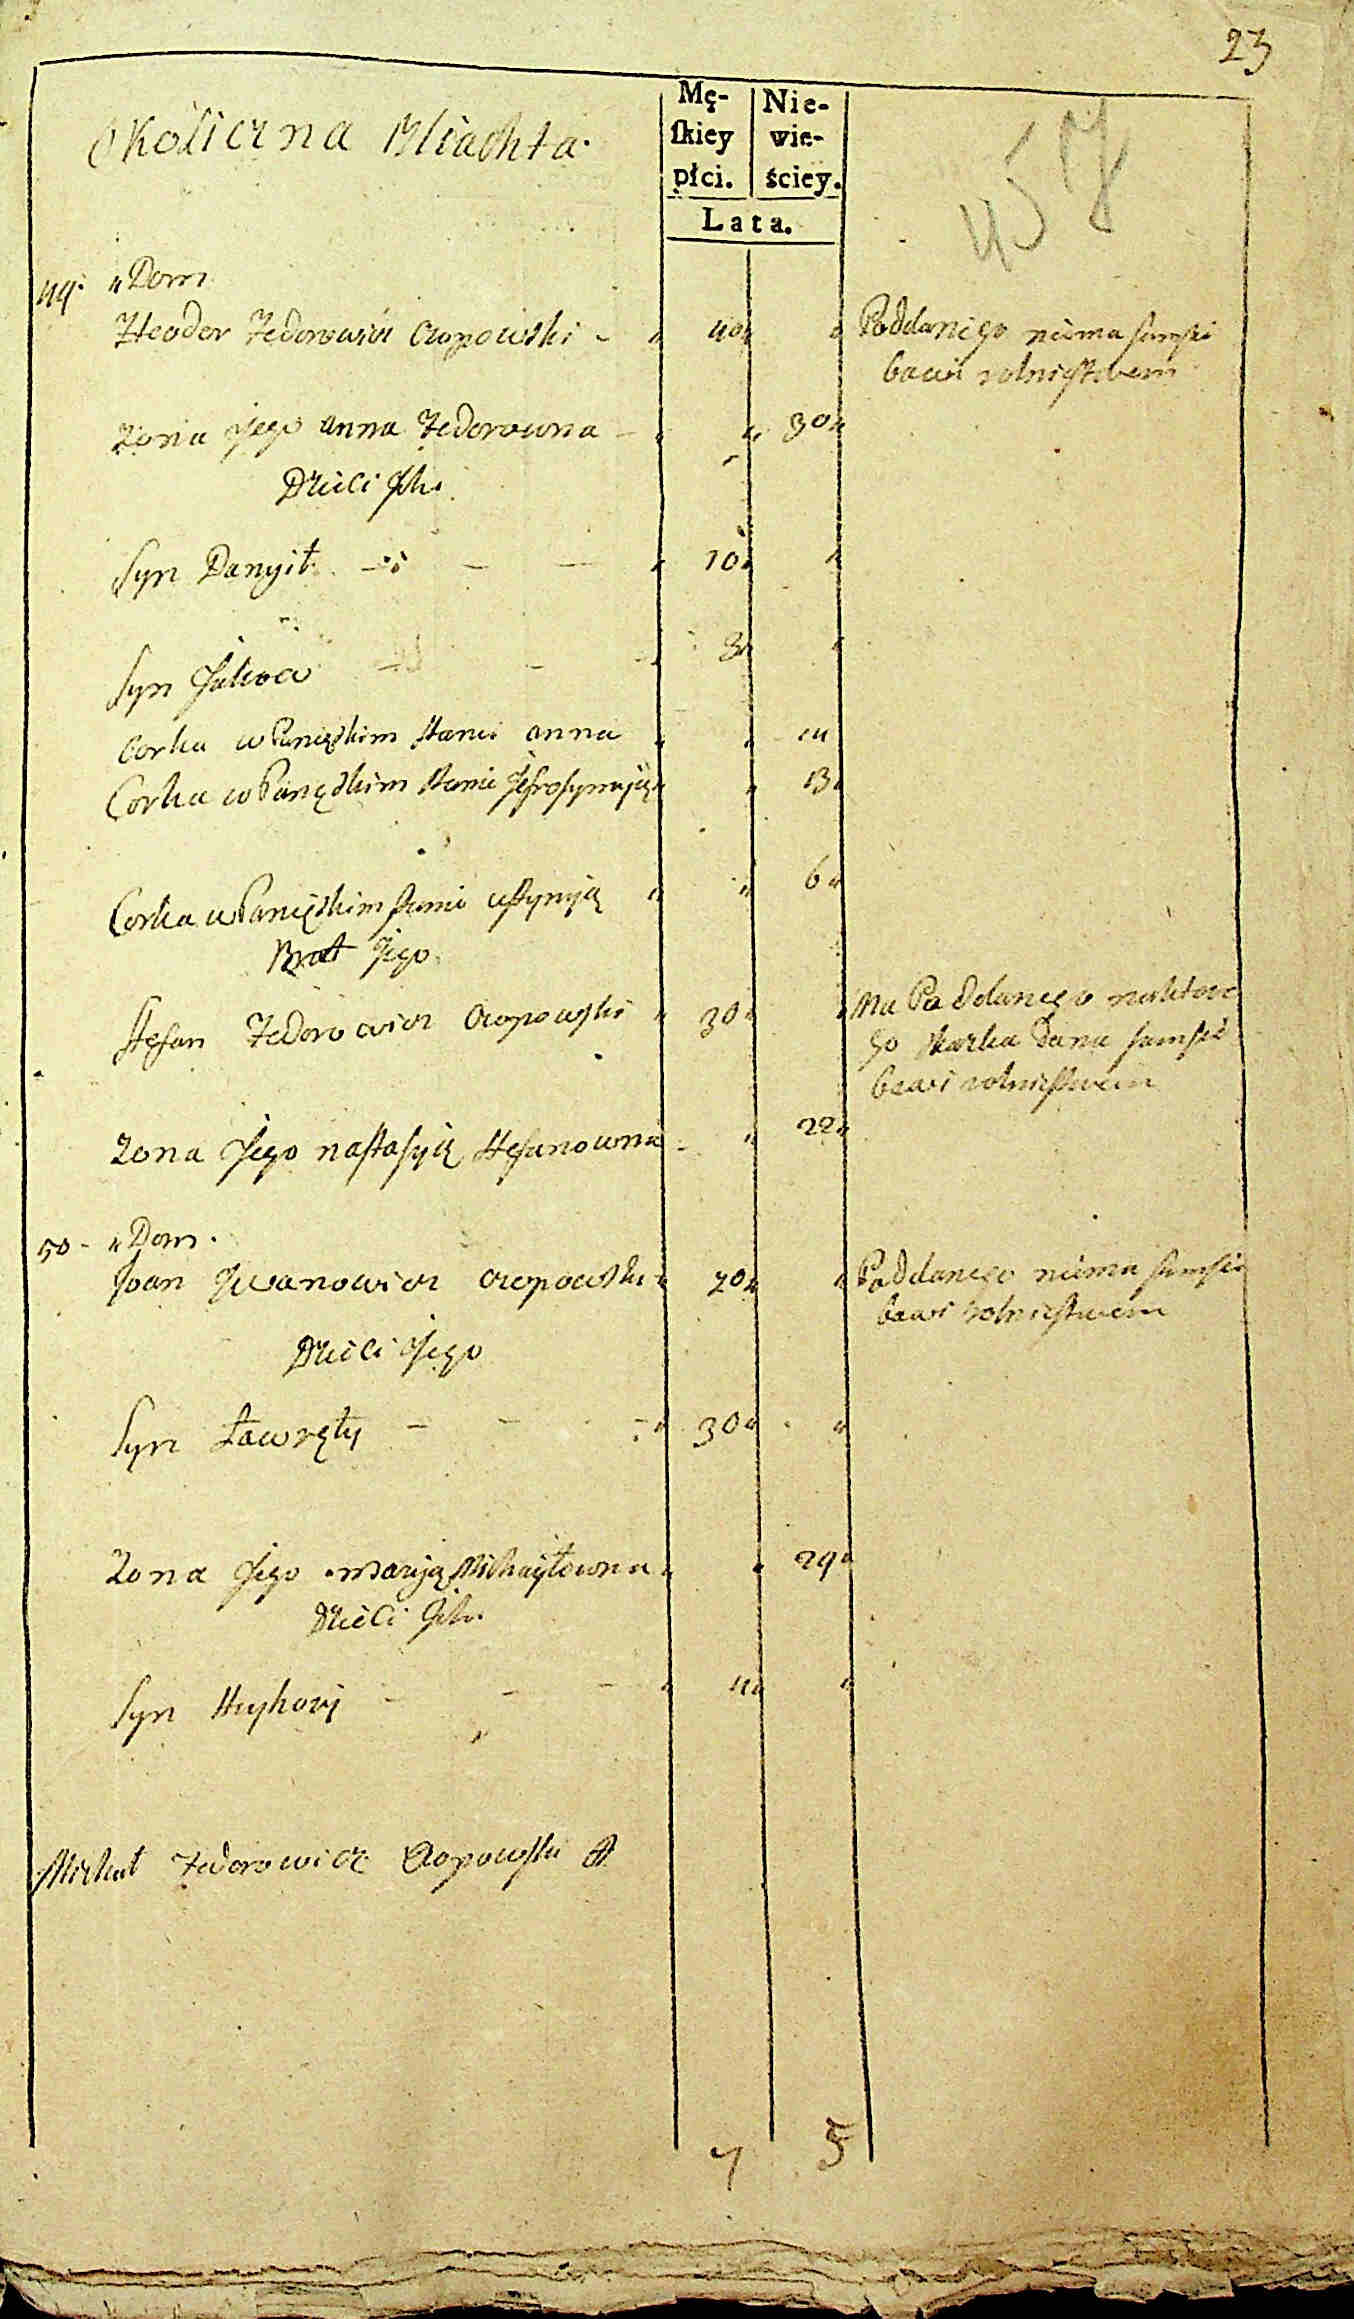 23
Mę-
skiey
płci.
Nie-
wie-
ściey.
Lata.
Okoliczna Szlachta.
457
49. „ Dom
Theodor Fedorowicz Czopowski - „ 40 „ „ Poddanego niema sam się
bawi rolnictwem
Zona Jego Anna Fedorowna - „ „ 30 „
Dzieci Ich
Syn Danyił - - - „ 10 „ „
Syn Jakow - - - „ 3 „ „
Corka w Panięskim stanie Anna „ „ 14
Corka w Panięskim stanie Jefrosynyią „ „ 13 „
Corka w Panięskim stanie Ustyniją „ „ 6 „
Brat Jego
Stefan Fedorowicz Czopowski „ 30 „ „ Ma Poddanego na ktore
go skazka Dana sam się
bawi rolnictwem
Zona Jego Nastasyią Stefanowna - „ 22 „
50 - „ Dom.
Joan Jwanowicz Czopowski „ 70 „ „ Poddanego niema sam się
bawi rolnictwem
Dzieci Jego
Syn Ławręty - - - „ 30 „ „
Zona Jego Maryją Michayłowna „ „ 29 „
Dzieci Ich
Syn Hryhory - - - „ 4 „ „
Michał Fedorowicz Czopowski
7 5